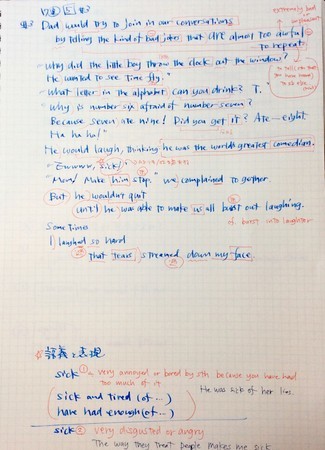 extremely bad or unpleasant
#3 Dad would try to join in our conversations
by telling the kind of bad jokes that are almost too awful
to repeat.
"Why did the little boy throw the clock out the window?
He wanted to see time fly."
"What letter in the alphabet can you drink? T.
"Why is number six afraid of number seven?
Because seven ate nine! Did you get it? Ate - eight
Ha ha ha!"
He would laugh, thinking he was the world's greatest comedian.
"Ewwww, sick!"
"Mom! Make him stop," we complained together.
But he wouldn't quit
until he was able to make us all burst out laughing.
cf. burst into laughter
Some times
I laughed so hard
that tears streamed down my face.
sick ① - very annoyed or bored by sth because you have had
too much of it
He was sick of her lies.
sick and tired (of...)
have had enough (of...)
sick ② very disgusted or angry
The way they treat people makes me sick